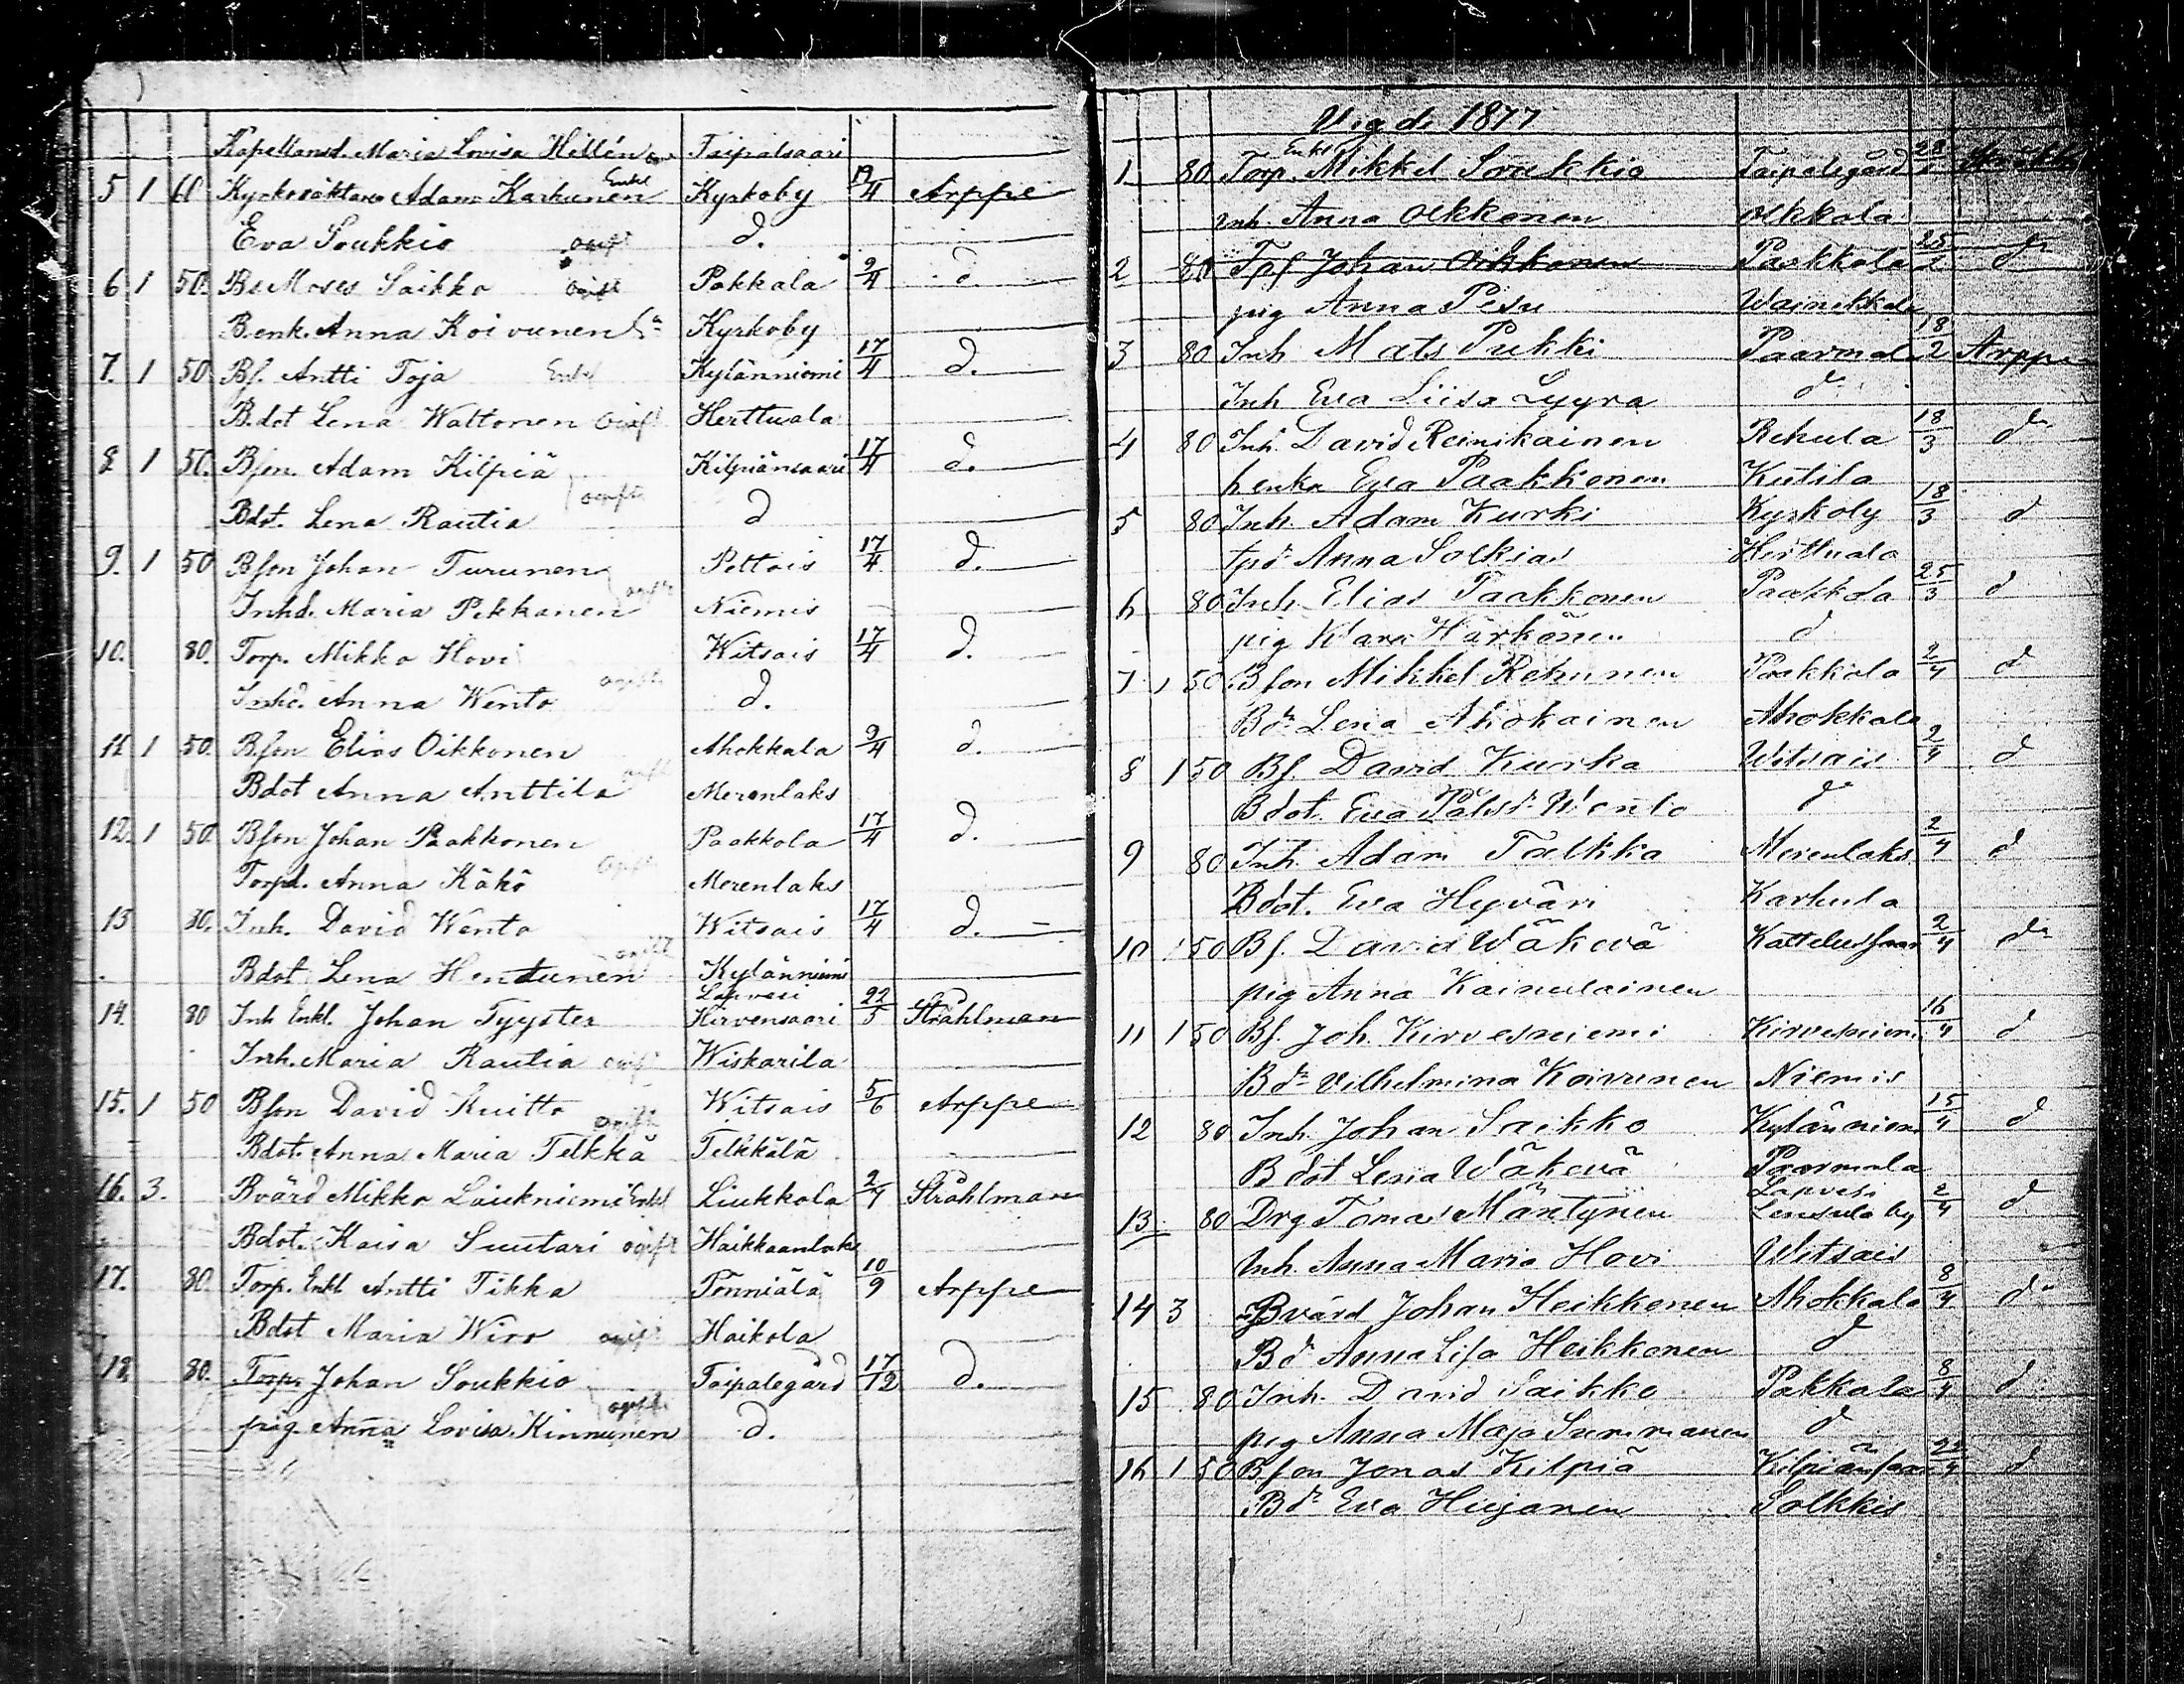 Kapellansd. Maria Lovisa Hellén Taipalsaari
5 1 60 Kyrkoväktare Adam Karhunen Enkl Kyrkoby 19/4 Arppe
Eva Soukkio ogift d.
6 1 50. Bs Moses Saikko ogift Pakkala 9/4 d.
B.enk. Anna Koivunen Kyrkoby
7. 1 50 Bf. Antti Toja Enkl Kylänniemi 17/4 d.
B.dot Lena Waltonen ogift Herttuala
8 1 50. Bson. Adam Kilpiä Kilpiänsaari 17/4 d.
ogift
Bdot. Lena Rautia d
9. 1 50 Bson Johan Turunen Pettois 17/4 d.
ogift
Inhd. Maria Pekkanen Niemis
10. 80. Torp. Mikko Hovi Witsais 17/4 d.
ogift
Inhd. Anna Wento d.
11. 1 50. B.son Elias Oikkonen Ahokkala 9/4 d.
ogift
Bdot Anna Anttila Merenlaks
12. 1 50. Bson Johan Paakkonen Paakkola 17/4 d.
ogift
Torpd. Anna Käkö Merenlaks
13 80. Inh. David Wento Witsais 17/4 d.
ogift
Bdot Lena Hentunen Kylänniemi
14. 80 Inh Enkl. Johan Tyyster Lapvesi Hirvensaari 22/5 Stråhlman
Inh. Maria Rautia ogift Wiskarila
15. 1 50 Bson David Kuitto Witsais 5/6 Arppe
ogift
Bdot. Anna Maria Telkkä Telkkälä
16. 3. Bvärd Mikko Laukniemi Enkl Liukkola 2/7 Stråhlman
Bdot. Kaisa Suutari ogift Haikkaanlaks
17. 80. Torp. Enkl Antti Tikka Pönniälä 10/9 Arppe
Bdot Maria Wiro ogift Haikola
18. 80. Torp. Johan Soukkio Taipalegård 17/12 d.
ogift
pig. Anna Lovisa Kinnunen d.
Vigde 1877
Enkl
1 80 Torp. Mikkel Soukkio Taipalegård
Inh. Anna Olkkonen Olkkala
2 80 Tpf Johan Oikkonen Paakkola 25 d
pig Anna Pesu Wainikkala
3 80 Inh Mats Pukki Paarmala 18/2 Arppe
Inh Eva Liisa Lyyra d
4 80 Inh. David Reinikainen Rehula 18/3 d
henka Eva Paakkonen Kutila
5 80 Inh. Adam Kurki Kyrkoby 18/3 d
tpd Anna Solkias Herttuala
6 80 Inh. Elias Paakkonen Paakkola 25/3 d
pig Klara Härkönen d
7 1 50 Bson Mikkel Rehunen Pakkala 2/4 d
Bd Lena Ahokainen Ahokkala
8 1 50 Bf. David Kurko Witsais 2/4 d
Bdot. Eva Wento d
9 80 Inh. Adam Talkka Merenlaks 2/4 d
Bdot. Eva Hyväri Karhula
10 1 50 Bf. David Wäkevä 2/4 d
pig Anna Kainulainen
11 1 50 Bf. Joh. Kirvesniemi Kirvesniemi 16/4 d
Bd Vilhelmina Koivunen Niemis
12 80 Inh. Johan Saikko Kylänniemi 15/4 d
Bdot Lena Wäkevä Paarmala
13 80 Drg Tomas Mäntynen Lapvesi Lensula by 2/4 d
Inh. Anna Maria Hovi Witsais
14 3 Bvärd Johan Heikkonen Ahokkala 8/4 d
Bd Anna Lisa Heikkonen d
15 80 Inh. David Saikko Pakkala 8/4 d
pig Anna Maja Summanen d
16 1 50 Bson Jonas Kilpiä Kilpiänsaari 22/4 d
Bd Eva Hujanen Solkkis